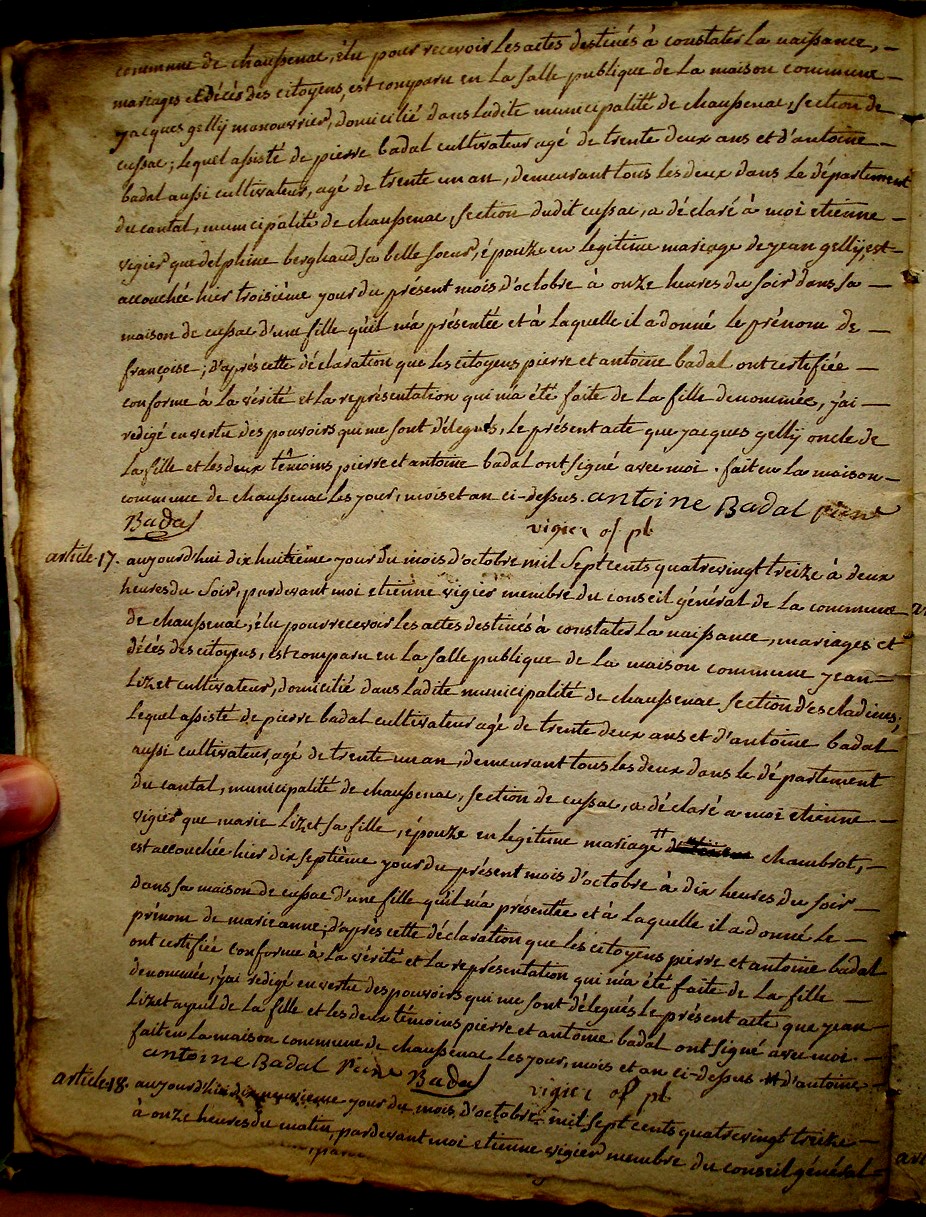 commune de chaussenac, élu pour recevoir les actes destinés à constater la naissance,
mariages et décès des citoyens, est comparu en la salle publique de la maison commune
jacques gelly manouvrier, domicilié dans ladite municipalité de chaussenac, section de
cussac; lequel assisté de pierre badal cultivateur agé de trente deux ans et d'antoine
badal aussi cultivateur, agé de trente un an, demeurant tous les deux dans le département
du cantal, municipalité de chaussenac, section dudit cussac, a déclaré à moi etienne
vigier que delphine berghaud sa belle soeur, épouze en légitime mariage de jean gelly, est
accouchée hier troisième jour du présent mois d'octobre à onze heures du soir dans sa
maison de cussac d'une fille qu'il m'a présentée et à laquelle il a donné le prénom de
françoise; d'après cette déclaration que les citoyens pierre et antoine badal ont certifiée
conforme à la vérité et la représentation qui m'a été faite de la fille denommée, j'ai
redigé en vertu des pouvoirs qui me sont délegués, le présent acte que jacques gelly oncle de
la fille et les deux témoins pierre et antoine badal ont signé avec moi. fait en la maison
commune de chaussenac les jour, mois et an ci-dessus. antoine Badal piere
Badal
vigier of pl
article 17. aujourd'hui dix huitième jour du mois d'octobre mil sept cents quatrevingt treize à deux
heures du soir, pardevant moi etienne vigier membre du conseil général de la commune
de chaussenac, élu pour recevoir les actes destinés à constater la naissance, mariages et
décès des citoyens, est comparu en la salle publique de la maison commune jean
lizet cultivateur, domicilié dans ladite municipalité de chaussenac section d'escladines;
lequel assisté de pierre badal cultivateur agé de trente deux ans et d'antoine badal
aussi cultivateur, agé de trente un an, demeurant tous les deux dans le département
du cantal, municipalité de chaussenac, section de cussac, a déclaré a moi etienne
vigier que marie lizet sa fille, épouze en legitime mariage # chambrot,
est accouchée hier dix septième jour du présent mois d'octobre à dix heures du soir
dans sa maison de cussac d'une fille qu'il m'a présentée et à laquelle il a donné le
prénom de marieanne; d'après cette déclaration que les citoyens pierre et antoine badal
ont certifiée conforme à la vérité et la représentation qui m'a été faite de la fille
denommée, j'ai redigé en vertu des pouvoirs qui me sont délegués le présent acte que jean
lizet ayeul de la fille et les deux témoins pierre et antoine badal ont signé avec moi.
fait en la maison commune de chaussenac les jour, mois et an ci-dessus. # d'antoine
antoine Badal Piere Badal
vigier of pl
article 18. aujourd'hui dix neuvieme jour du mois d'octobre mil sept cents quatrevingt treize
à onze heures du matin, pardevant moi etienne vigier membre du conseil général